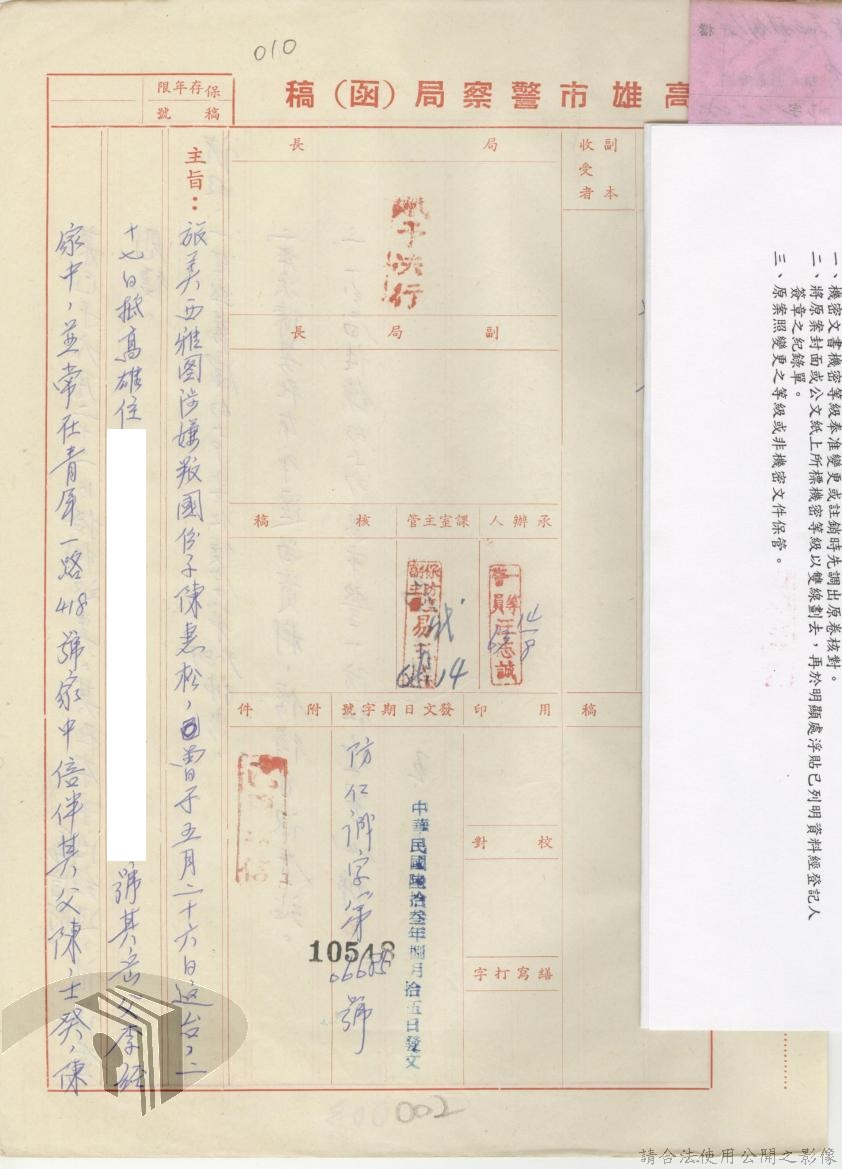 010
高雄市警察局（函）稿
保存年限
稿號
副本
收受者
局長
代決行
副局長
承辦人
課室主管
核稿
一等警員
保防室
副主
6/14
稿
用印
發文日期字號
附件
校對
繕寫打字
中華民國陸拾叁年捌月拾五日發文
防仁誠字第
號
10548
主旨：旅美西雅圖涉嫌叛國份子陳惠松，曾于五月二十六日返台，二
十七日抵高雄住
號其岳父李
家中，並常在青年一路418號家中倍伴其父陳士癸，陳
一、機密文書機密等級奉准變更或註銷時先調出原卷核對。
二、將原案封面或公文紙上所標機密等級以雙線劃去，再於明顯處浮貼已列明資料經登記人
簽章之紀錄單。
三、原案照變更之等級或非機密文件保管。
002
請合法使用公開之影像